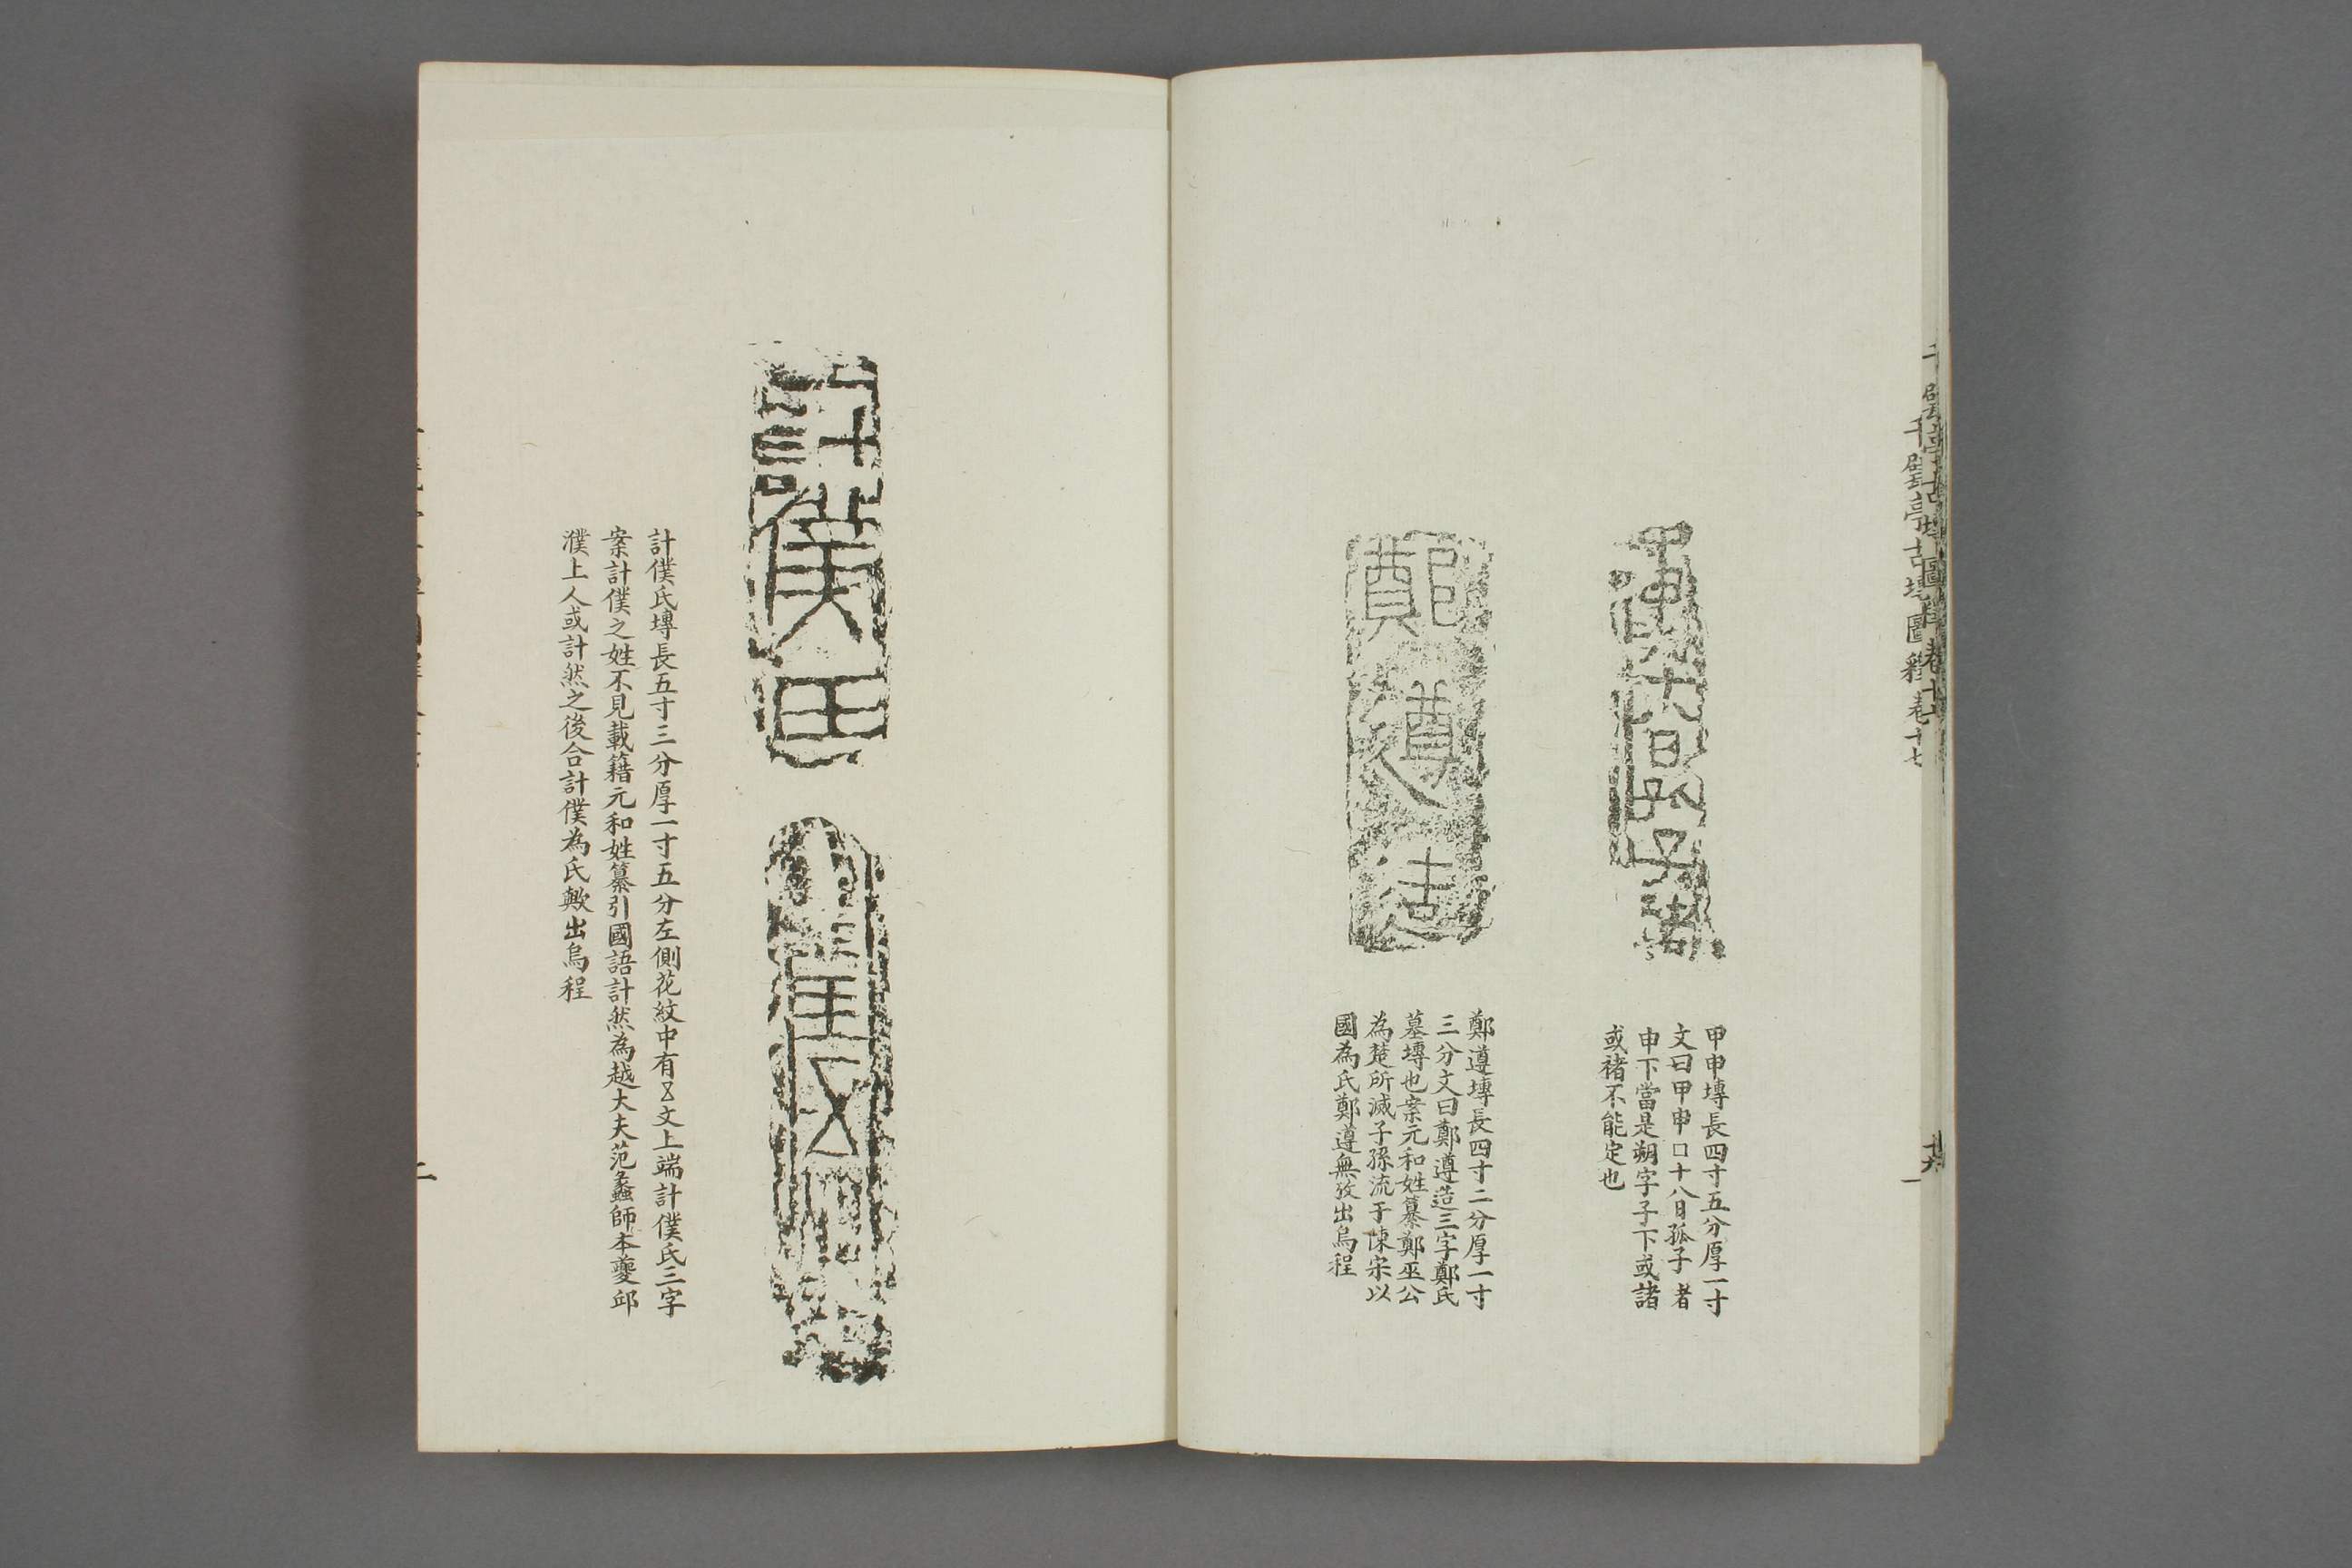 千甓亭古塼圖釋卷十七
甲申塼長四寸五分厚一寸
文曰甲申口十八日孤子者
申下當是朔字子下或諸
或褚不能定也
鄭遵塼長四寸二分厚一寸
三分文曰鄭遵造三字鄭氏
墓塼也案元和姓纂鄭巫公
為楚所滅子孫流于陳宋以
國為氏鄭遵無攷出烏程
鄭遵造
計僕氏
計僕氏塼長五寸三分厚一寸五分左側花紋中有文上端計僕氏三字
案計僕之姓不見載籍元和姓纂引國語計然為越大夫范蠡師本夔邱
濮上人或計然之後合計僕為氏歟出烏程
二